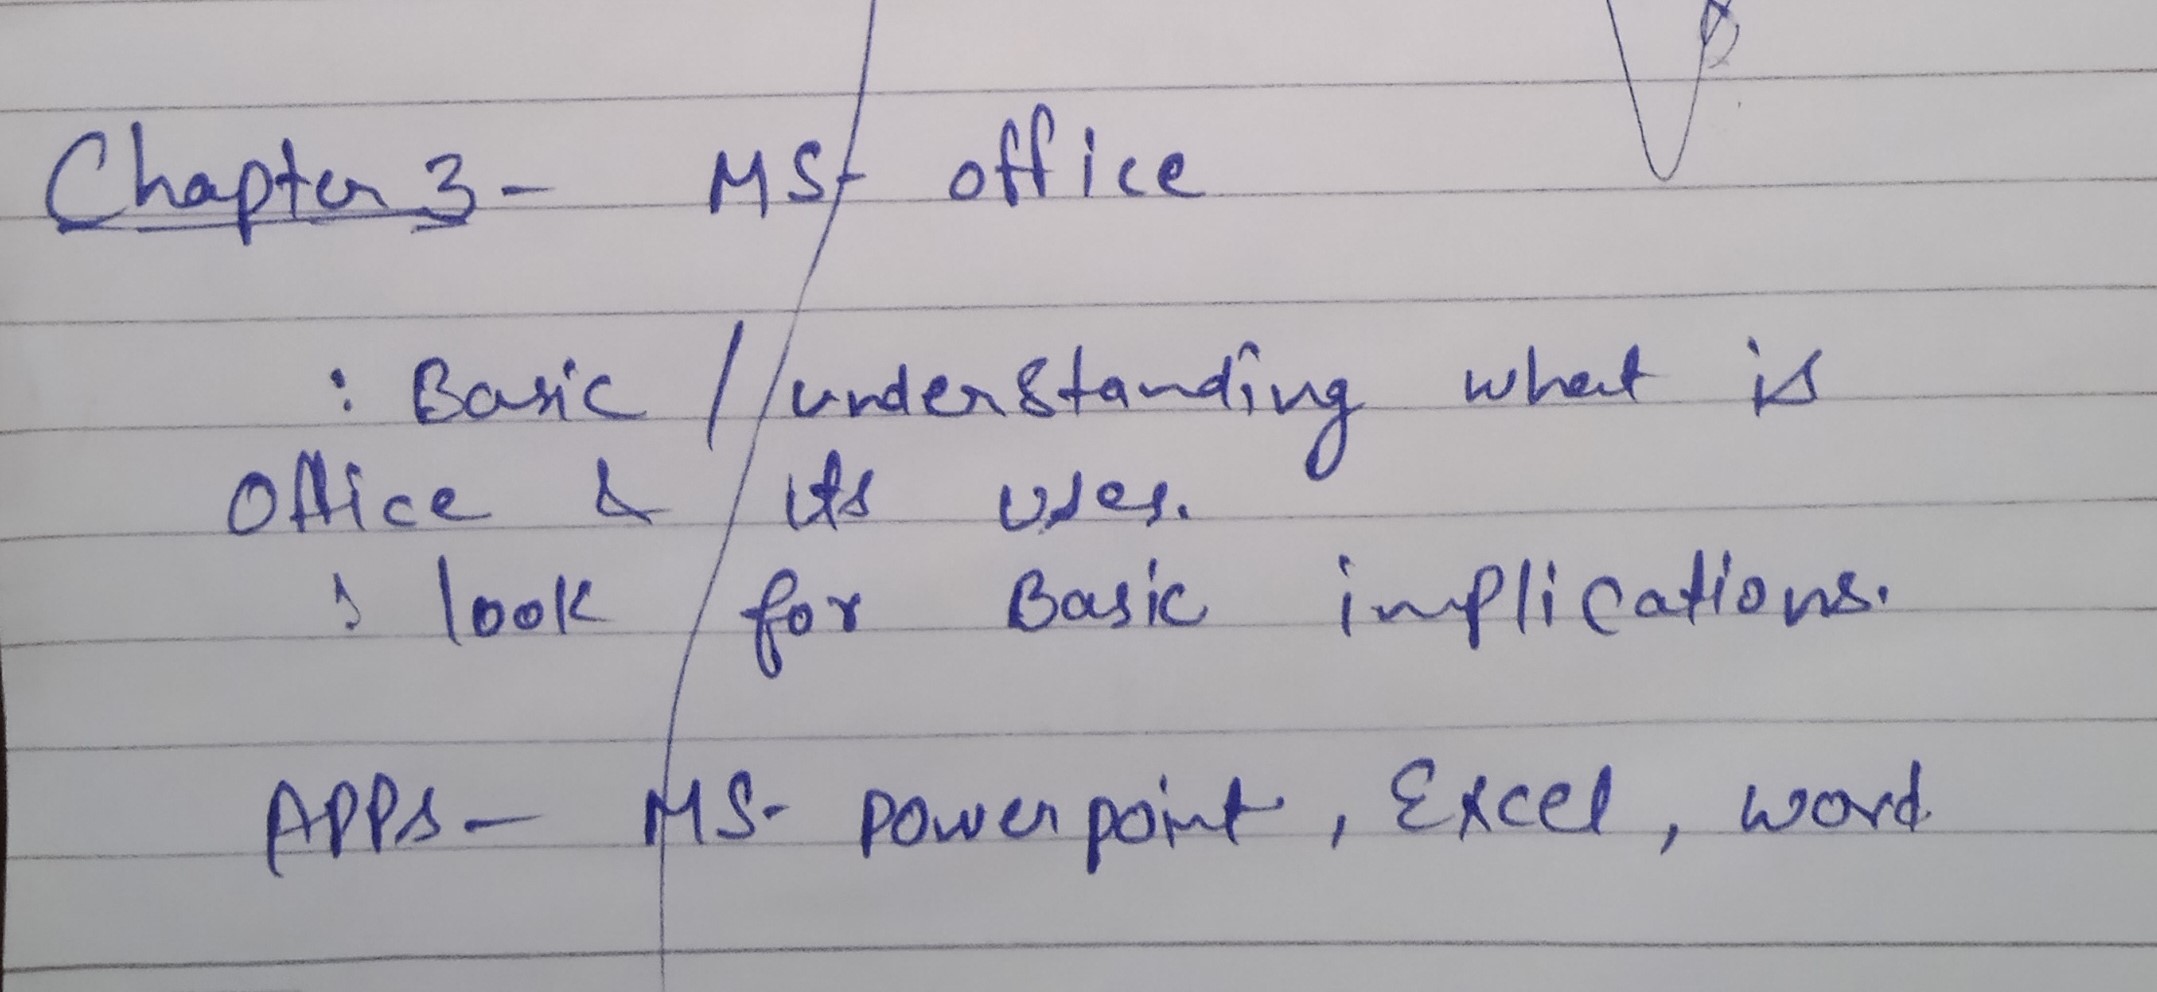 Chapter 3 - MS- office
: Basic / understanding what is
Office & its uses.
: look for Basic implications.
APPs - MS- powerpoint, Excel, word